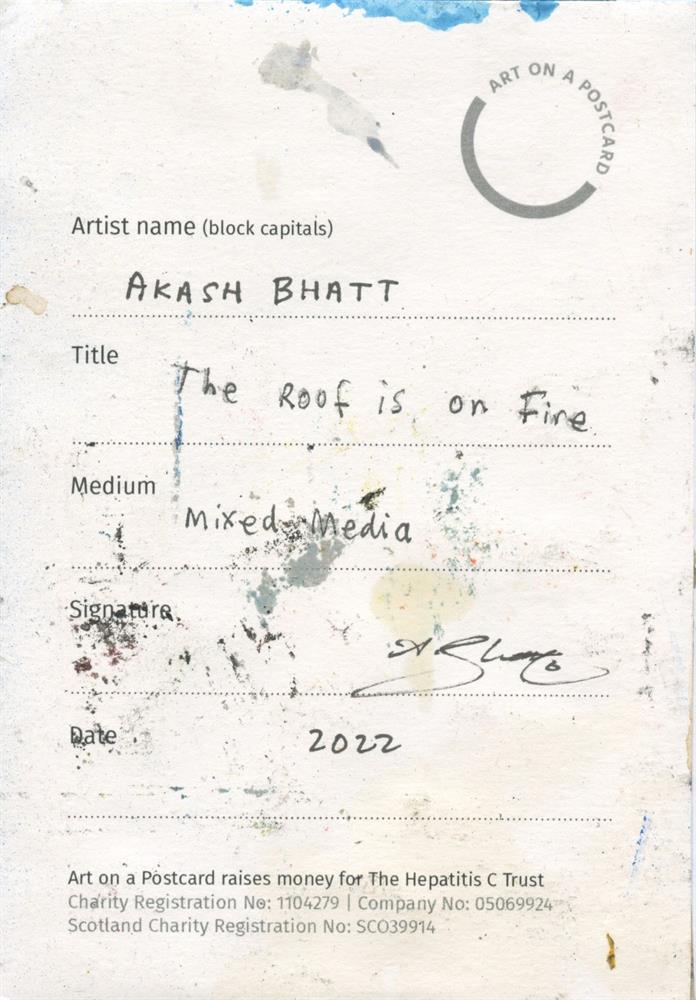 ART ON A POSTCARD
Artist name (block capitals)
AKASH BHATT
Title
The Roof is on Fire
Medium
Mixed Media
Signature
A Bhatt
Date
2022
Art on a Postcard raises money for The Hepatitis C Trust
Charity Registration No: 1104279 | Company No: 05069924
Scotland Charity Registration No: SCO39914